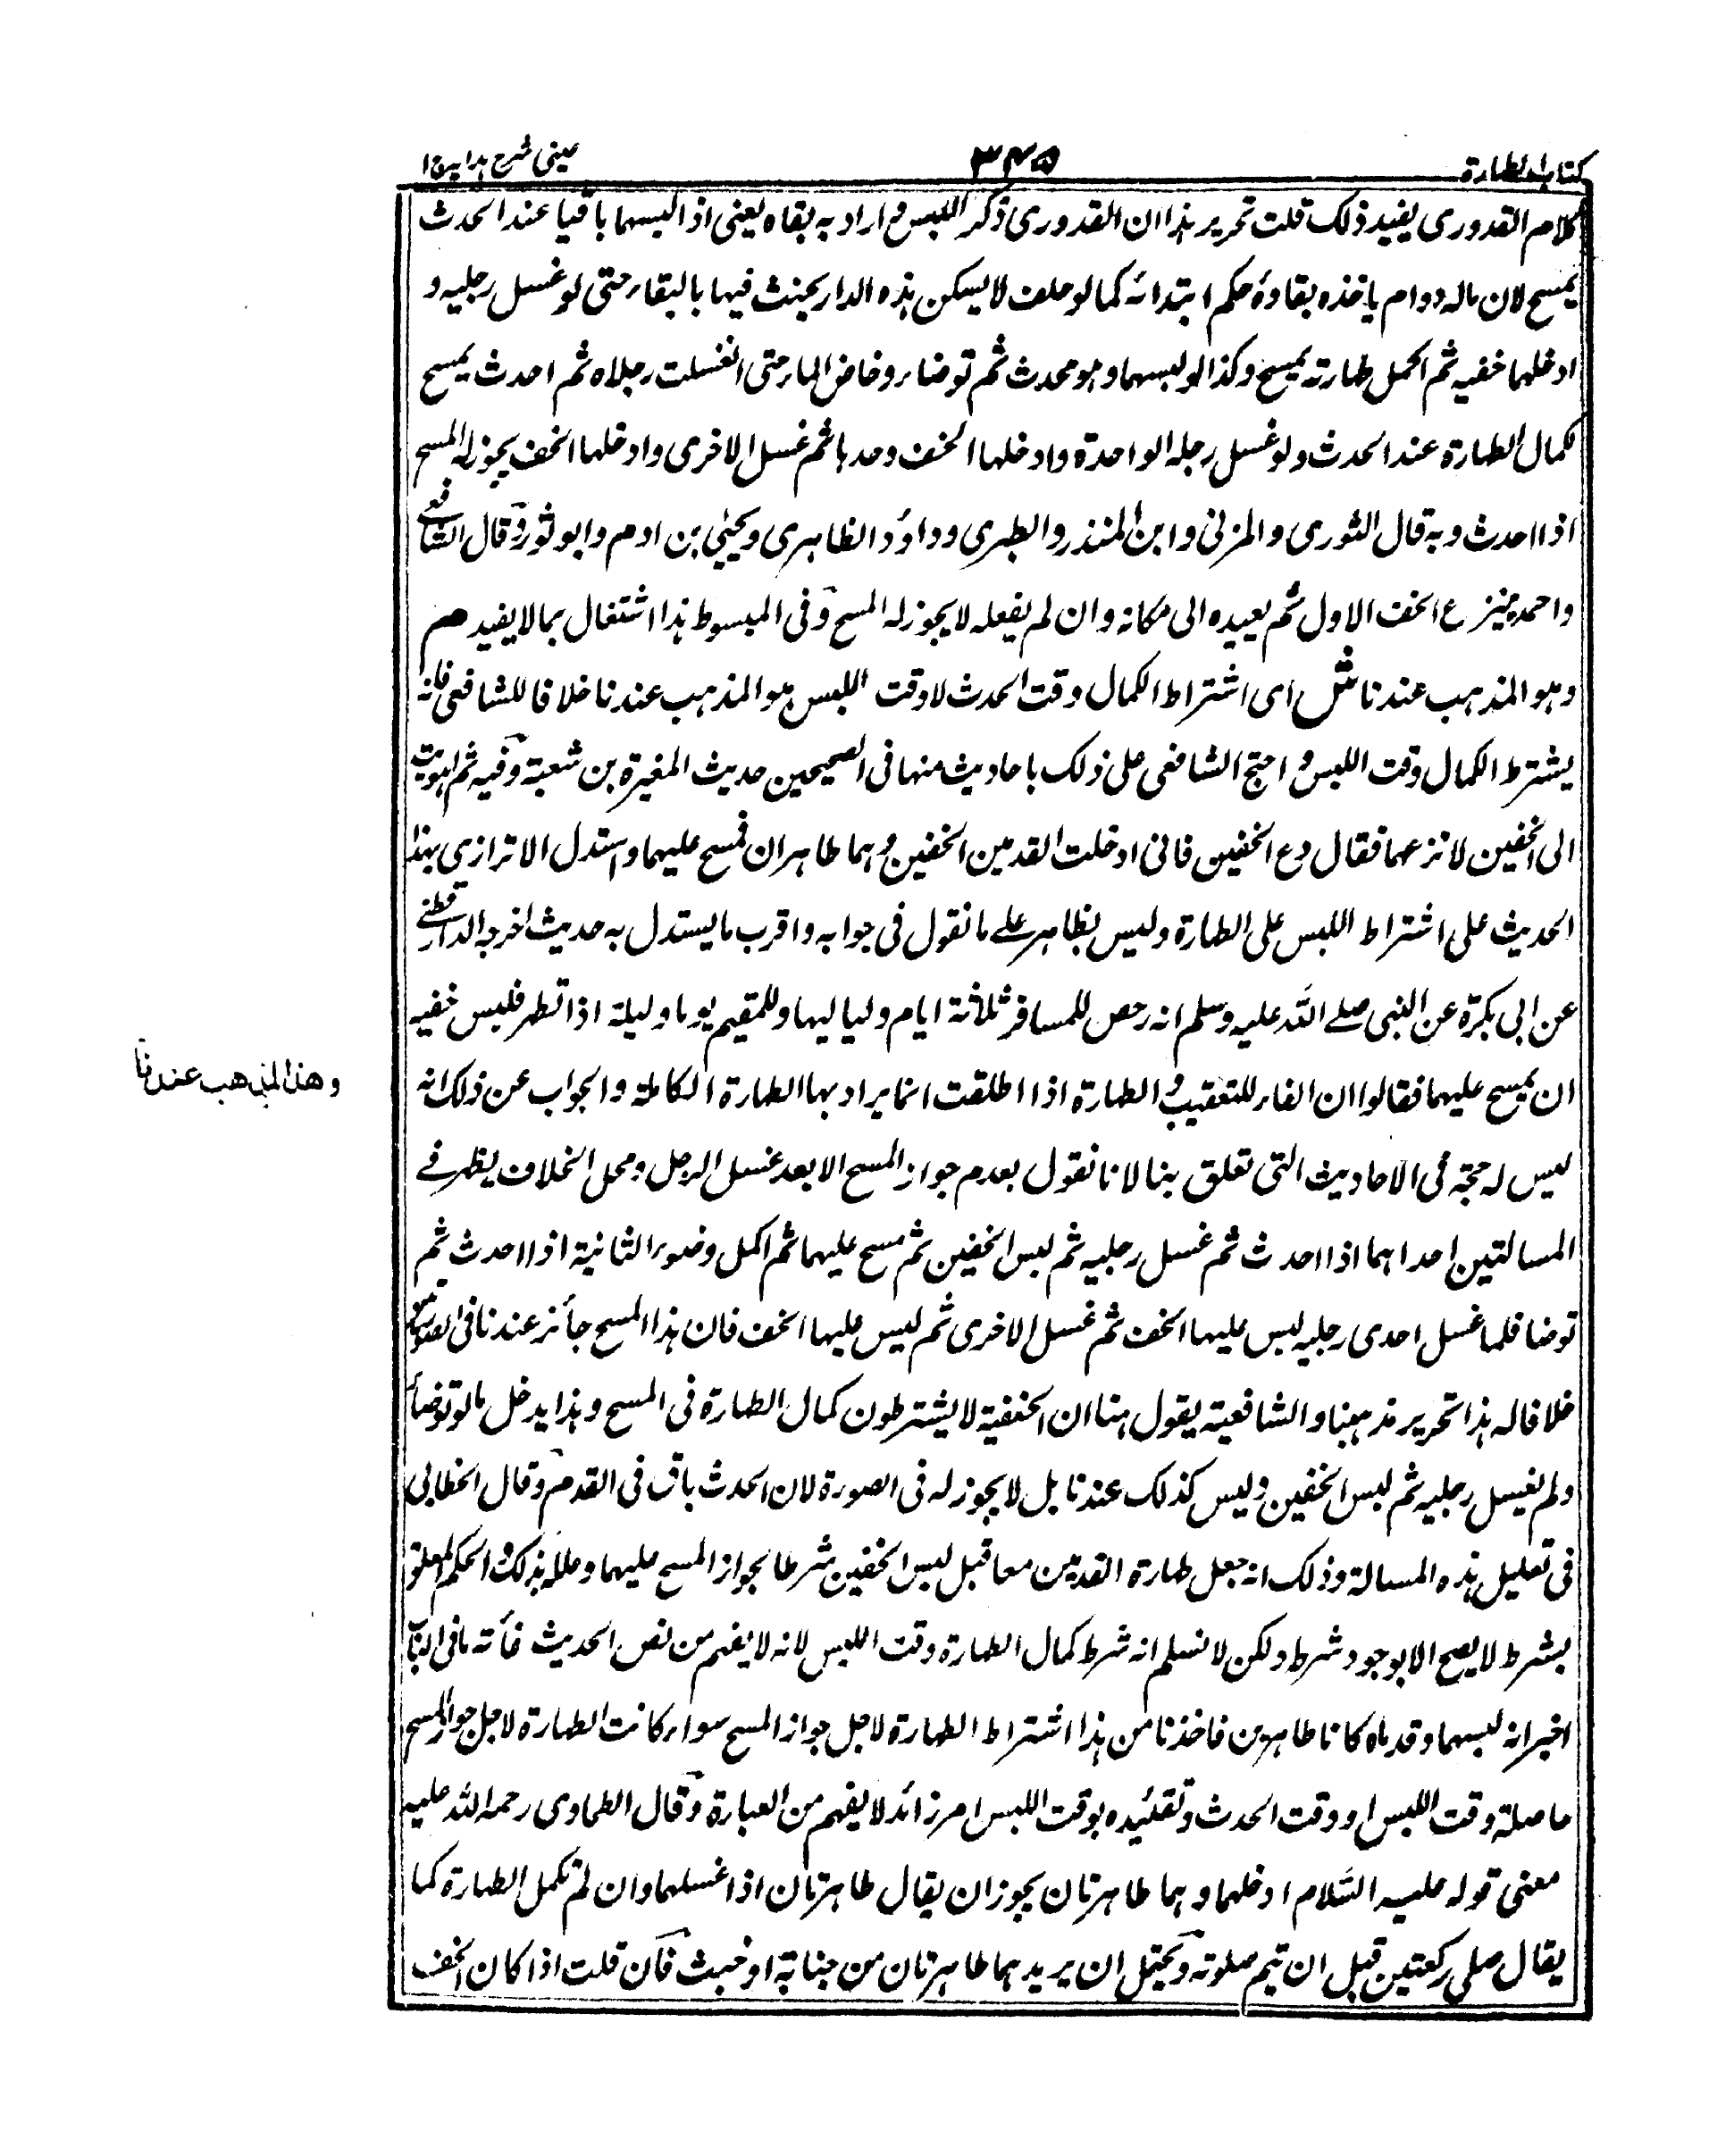 كتاب الطهارة
٣٤٥
عينى شرح هدايه ج ا
كلام القدورى يفيد ذلك قلت تحرير هذا ان القدورى ذكر اللبس و اراد به بقاه يعنى اذا لبسهما باقيا عند الحدث
يمسح لان ماله دوام ياخذه بقاوه حكم ابتدائه كما لو حلف لا يسكن هذه الدار يحنث فيها بالبقاء حتى لو غسل رجليه و
ادخلهما خفيه ثم اكمل طهارته يمسح وكذا لو لبسهما وهو محدث ثم توضاء وخاض الماء حتى انغسلت رجلاه ثم احدث يمسح
لكمال الطهارة عند الحدث ولو غسل رجله الواحدة وادخلها الخف وحدها ثم غسل الاخرى وادخلها الخف يجوز له المسح
اذا احدث وبه قال الثورى والمزنى وابن المنذر والطبرى وداؤد الظاهرى ويحيى بن ادم وابو ثور وقال الشافعى
واحمد ينزع الخف الاول ثم يعيده الى مكانه وان لم يفعله لا يجوز له المسح وفى المبسوط هذا اشتغال بما لا يفيد صم
وهو المذهب عندنا ش اى اشتراط الكمال وقت الحدث لا وقت اللبس هو المذهب عندنا خلافا للشافعى فانه
يشترط الكمال وقت اللبس واحتج الشافعى على ذلك باحاديث منها فى الصحيحين حديث المغيرة بن شعبة وفيه ثم اهويت
الى الخفين لانزعهما فقال دع الخفين فانى ادخلت القدمين الخفين وهما طاهران فمسح عليهما واستدل الاترازى بهذا
الحديث على اشتراط اللبس على الطهارة وليس بظاهر على ما نقول فى جوابه واقرب ما يستدل به حديث اخرجه الدارقطنى
عن ابى بكرة عن النبى صلى الله عليه وسلم انه رخص للمسافر ثلاثة ايام ولياليها وللمقيم يوما وليلة اذا تطهر فلبس خفيه
ان يمسح عليهما فقالوا ان الفاء للتعقيب و الطهارة اذا اطلقت انما يراد بها الطهارة الكاملة والجواب عن ذلك انه
ليس له حجة فى الاحاديث التى تعلق بنا لانا نقول بعدم جواز المسح الا بعد غسل الرجل ومحل الخلاف يظهر فى
المسالتين احداهما اذا احدث ثم غسل رجليه ثم لبس الخفين ثم مسح عليهما ثم اكمل وضوء الثانية اذا احدث ثم
توضا فلما غسل احدى رجليه لبس عليها الخف ثم غسل الاخرى ثم لبس عليها الخف فان هذا المسح جائز عندنا فى الصورتين
خلافا له هذا تحرير مذهبنا والشافعية يقول هنا ان الحنفية لا يشترطون كمال الطهارة فى المسح وهذا يدخل ما لو توضأ
ولم يغسل رجليه ثم لبس الخفين وليس كذلك عندنا بل لا يجوز له فى الصورة لان الحدث باق فى القدم وقال الخطابى
فى تعليل هذه المسالة وذلك انه جعل طهارة القدمين معا قبل لبس الخفين شرطا لجواز المسح عليهما وعلله بذلك والحكم المعلق
بشرط لا يصح الا بوجود شرط ولكن لا نسلم انه شرط كمال الطهارة وقت اللبس لانه لا يفهم من نص الحديث غأته ما فى الباب
اخبر انه لبسهما وقدماه كانا طاهرين فاخذنا من هذا اشتراط الطهارة لاجل جواز المسح سواء كانت الطهارة لاجل جواز المسح
حاصلة وقت اللبس او وقت الحدث وتقئيده بوقت اللبس امر زائد لا يفهم من العبارة وقال الطحاوى رحمه الله عليه
معنى قوله عليه السلام ادخلهما وهما طاهرتان يجوز ان يقال طاهرتان اذا غسلهما وان لم تكمل الطهارة كما
يقال صلى ركعتين قبل ان تيم صلوته ويحتمل ان يريد هما طاهرتان من جنابة او خبث فان قلت اذا كان الخف
وهذا المذهب عندنا